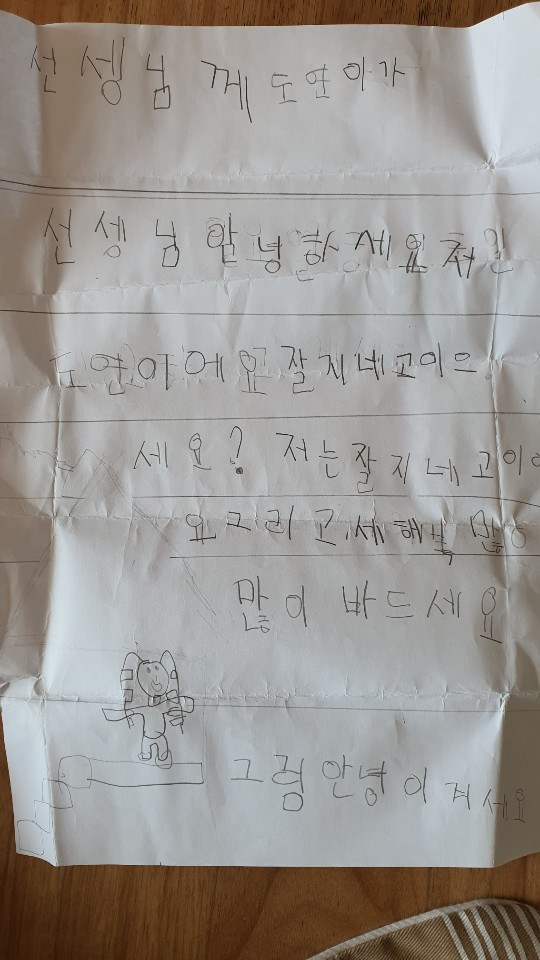 선셍님께 도연아가
선셍님 안녕하세요 저
도연아에요 잘지네고이으
세요? 저는 잘지네고이
요 그리고 세해복 많
많이 바드세요
그럼 안녕이게세요